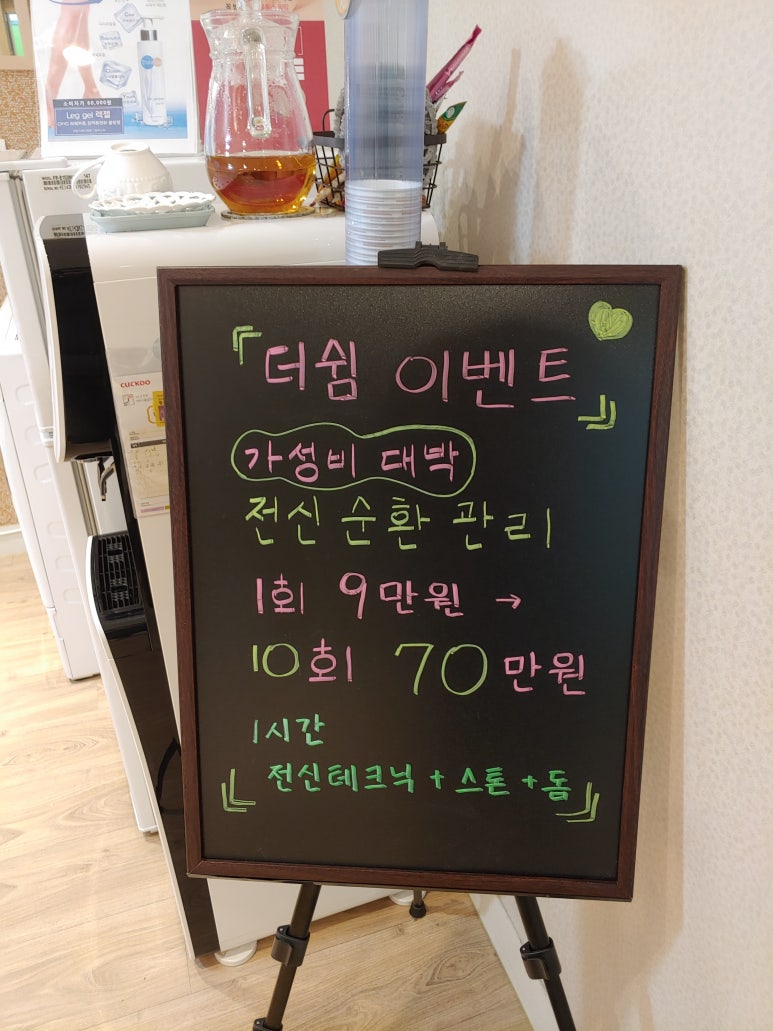 소비자가 60,000원
Leg gel 렉젤
CUCKOO
더쉼 이벤트
가성비 대박
전신 순환 관리
1회 9만원 →
10회 70만원
1시간
전신테크닉 + 스톤 + 돔